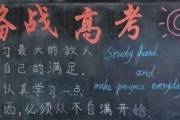 备战高考
习最大的敌人
自己的满足,
认真学习一点
西,必须从不自满开始.
Study hard
and
make progress everyday